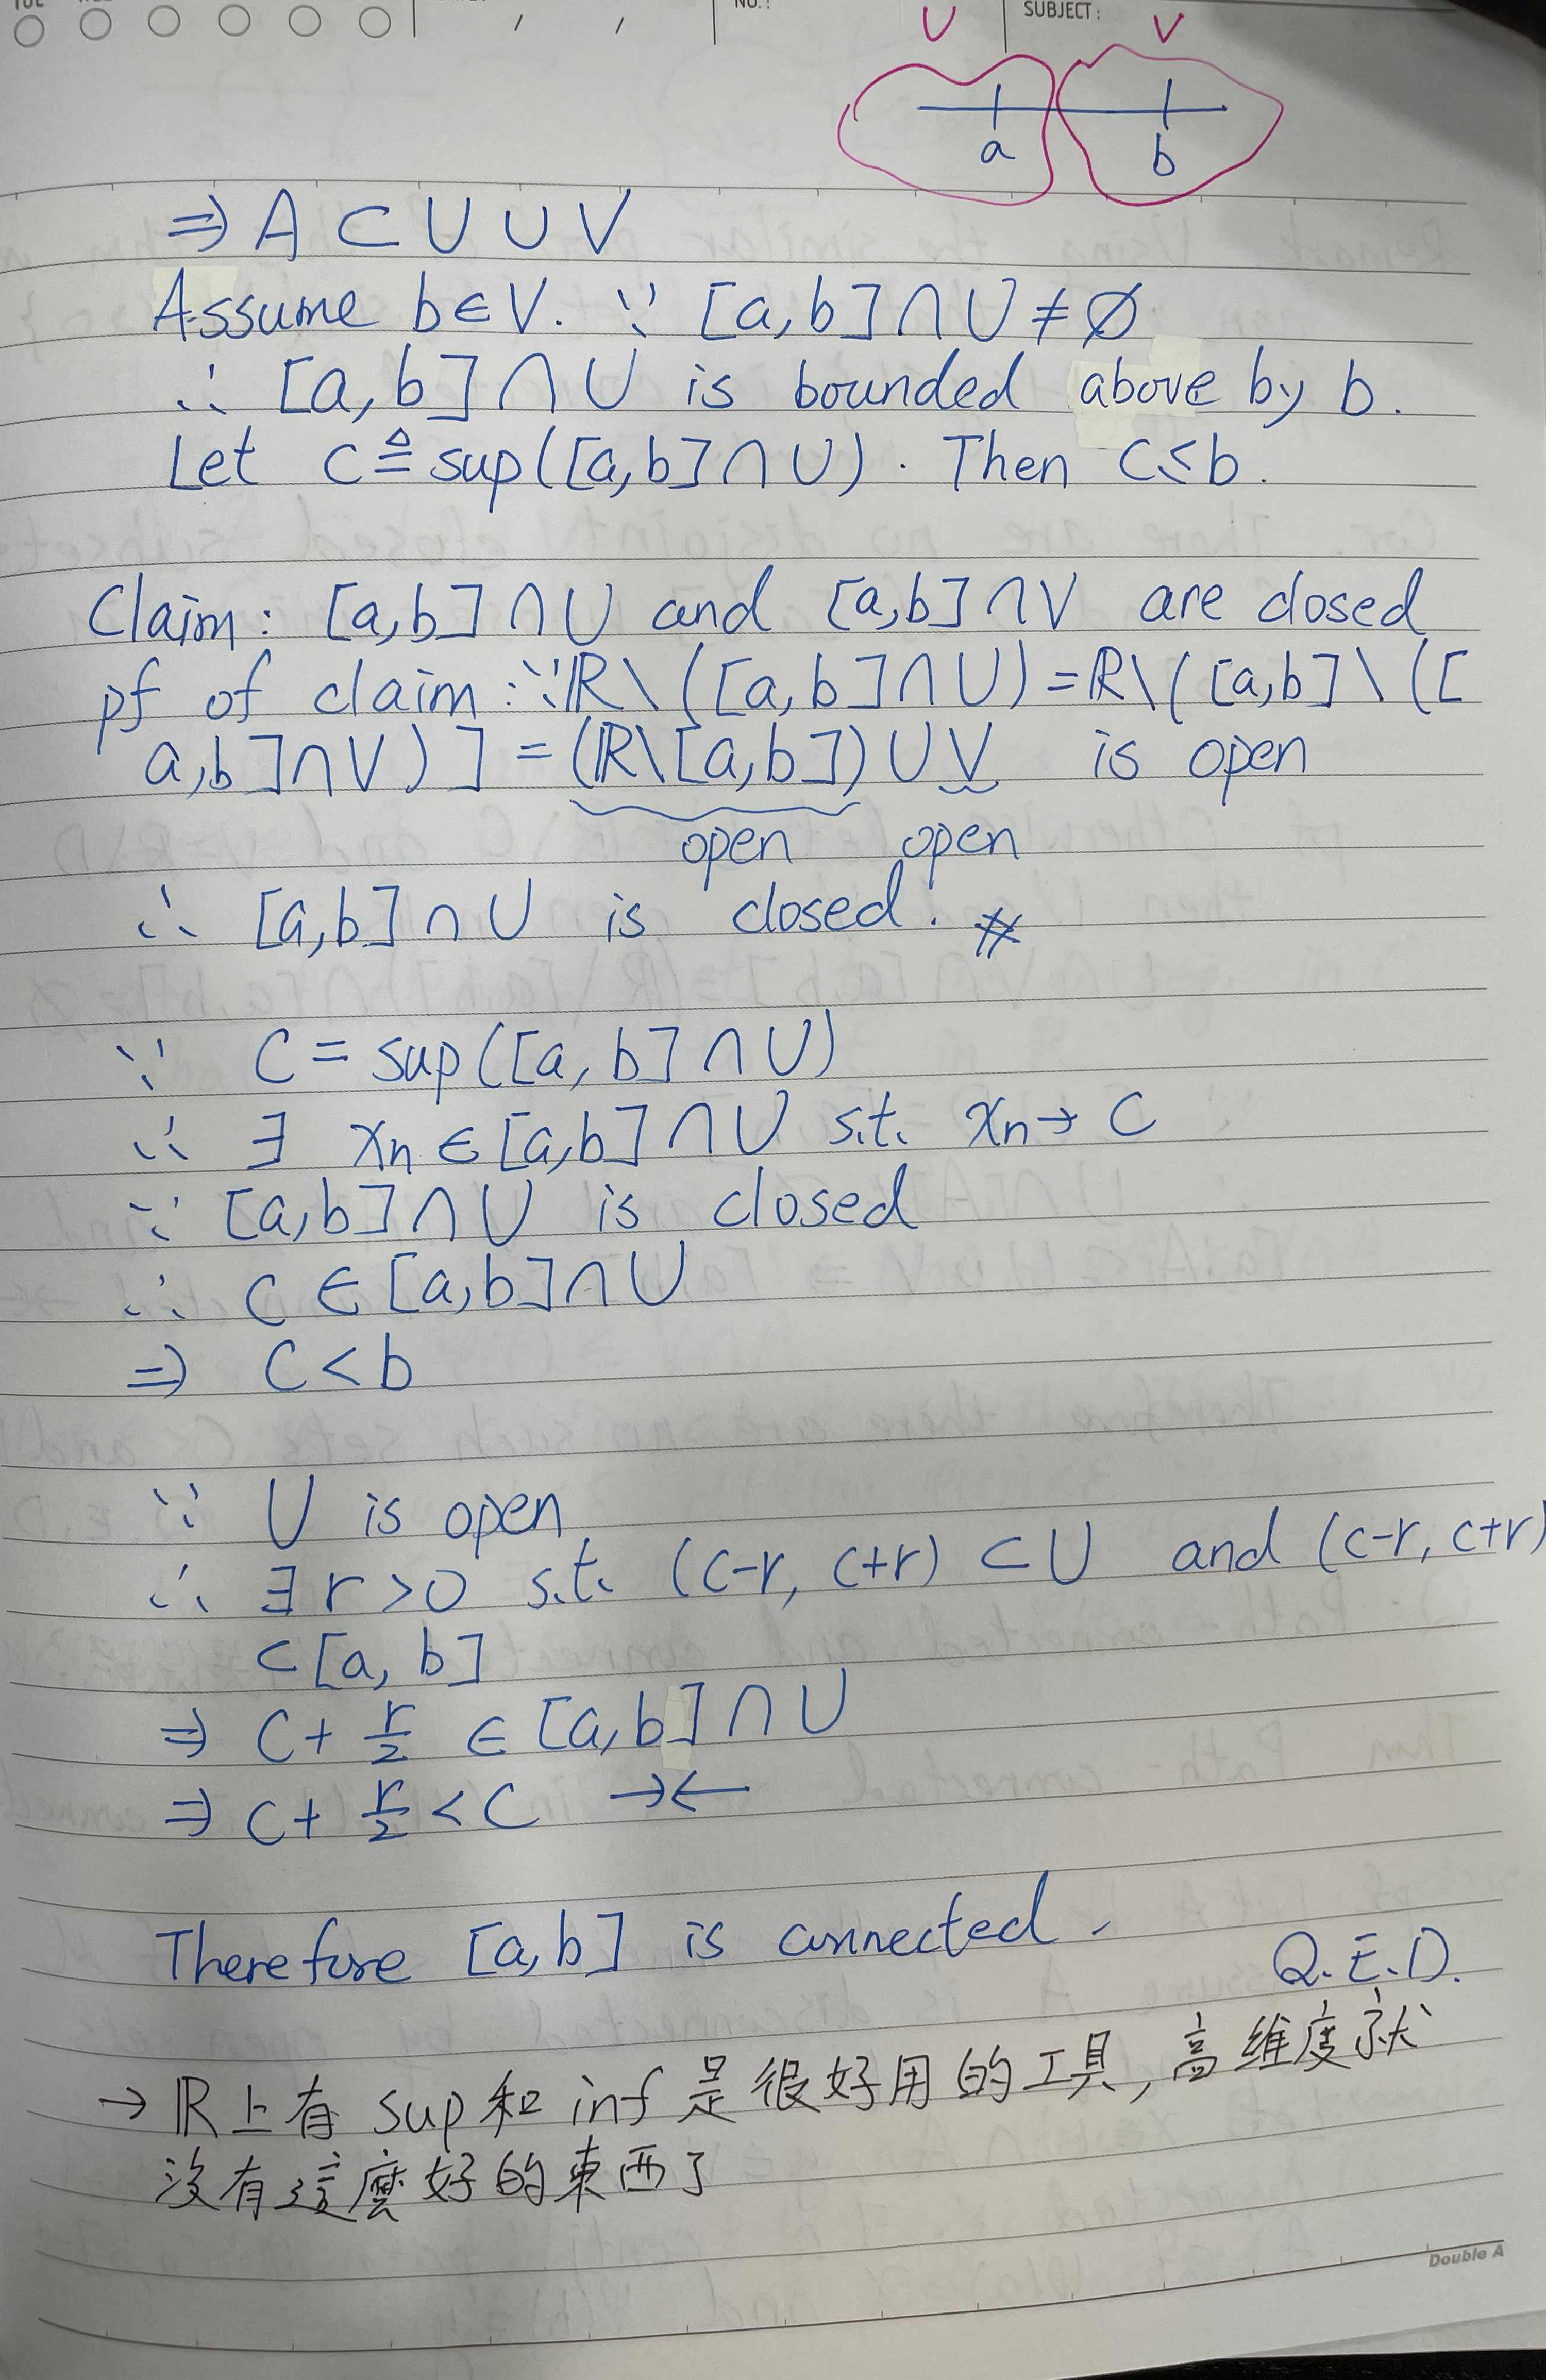 NO.:
SUBJECT:
U V
a b
⇒ A ⊂ U ∪ V
Assume b∈V. ∵ [a,b]∩U≠∅
∴ [a,b]∩U is bounded above by b.
Let c≜sup([a,b]∩U). Then c≤b.
Claim: [a,b]∩U and [a,b]∩V are closed
pf of claim: ∵ℝ\([a,b]∩U)=ℝ\([a,b]\([
a,b]∩V)]=(ℝ\[a,b])∪V is open
open open
∴ [a,b]∩U is closed. #
∵ C=sup([a,b]∩U)
∴ ∃ xn∈[a,b]∩U s.t. xn→C
∵ [a,b]∩U is closed
∴ C∈[a,b]∩U
⇒ C<b
∵ U is open
∴ ∃r>0 s.t. (c-r, c+r)⊂U and (c-r, c+r)
⊂[a,b]
⇒ C+r/2 ∈[a,b]∩U
⇒ C+r/2<C →←
Therefore [a,b] is connected.
Q.E.D.
→ ℝ上有 sup和 inf 是很好用的工具,高維度就
沒有這麼好的東西了
Double A